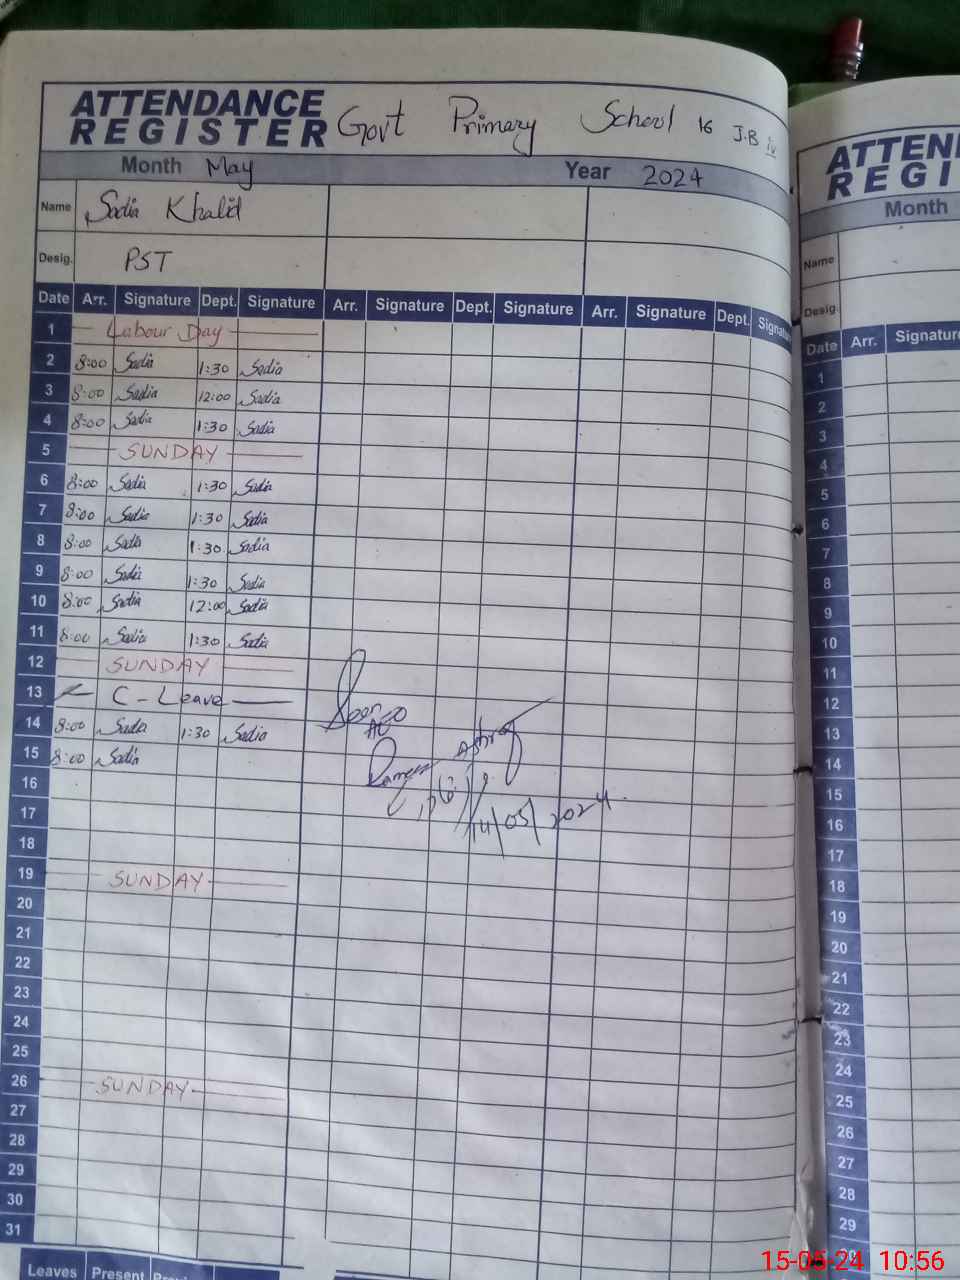 ATTENDANCE
REGISTER Govt Primary School 16 J.B iv
Month May Year 2024
Name Sadia Khalid
Desig. PST
Date Arr. Signature Dept. Signature Arr. Signature Dept. Signature Arr. Signature Dept. Signatu
1 Labour Day
2 8:00 Sadia 1:30 Sadia
3 8:00 Sadia 12:00 Sadia
4 8:00 Sadia 1:30 Sadia
5 SUNDAY
6 8:00 Sadia 1:30 Sadia
7 8:00 Sadia 1:30 Sadia
8 8:00 Sadia 1:30 Sadia
9 8:00 Sadia 1:30 Sadia
10 8:00 Sadia 12:00 Sadia
11 8:00 Sadia 1:30 Sadia
12 SUNDAY
13 C-Leave
14 8:00 Sadia 1:30 Sadia
15 8:00 Sadia
Seen
AEO
14/05/2024
16
17
18
19 SUNDAY
20
21
22
23
24
25
26 SUNDAY
27
28
29
30
31
Leaves Present
ATTEN
REGI
Month
Name
Desig.
Date Arr. Signature
1
2
3
4
5
6
7
8
9
10
11
12
13
14
15
16
17
18
19
20
21
22
23
24
25
26
27
28
29
15-05-24 10:56